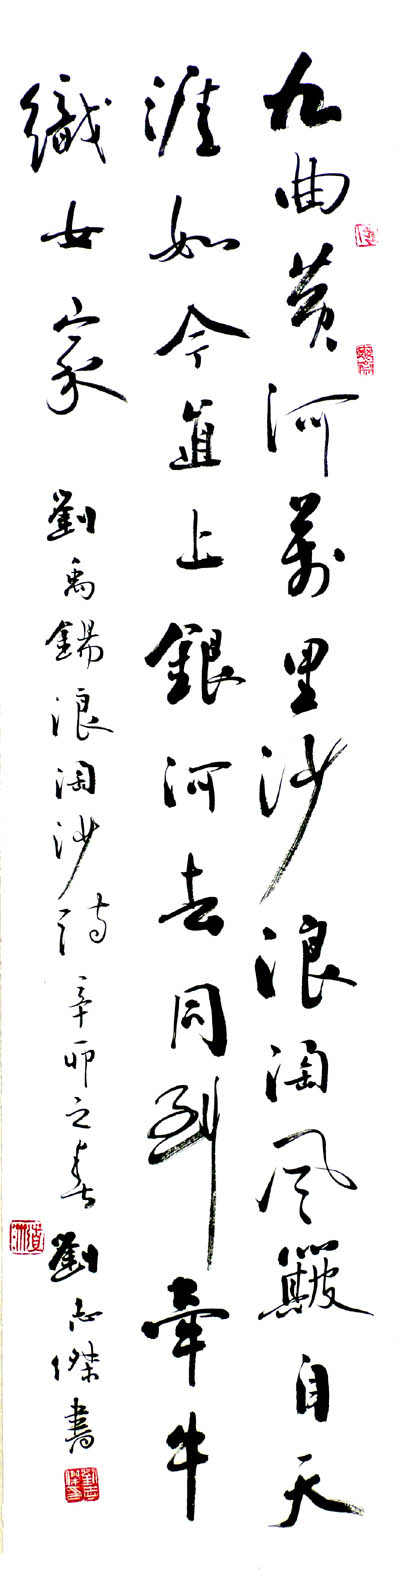 九曲黄河萬里沙浪淘風簸自天
涯如今直上銀河去同到牽牛
織女家 劉禹錫浪淘沙詩 辛卯之春 劉志傑書